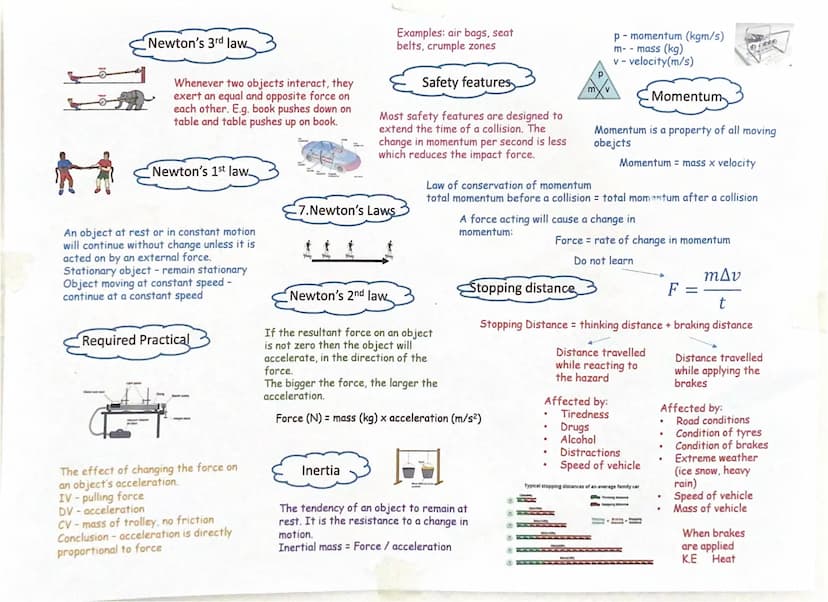 Newton's 3rd law
Whenever two objects interact, they
exert an equal and opposite force on
each other. E.g. book pushes down on
table and table pushes up on book.
Newton's 1st law
An object at rest or in constant motion
will continue without change unless it is
acted on by an external force.
Stationary object – remain stationary
Object moving at constant speed –
continue at a constant speed
Required Practical
The effect of changing the force on
an object's acceleration.
IV – pulling force
DV – acceleration
CV – mass of trolley, no friction
Conclusion – acceleration is directly
proportional to force
7.Newton's Laws
Newton's 2nd law
If the resultant force on an object
is not zero then the object will
accelerate, in the direction of the
force.
The bigger the force, the larger the
acceleration.
Force (N) = mass (kg) x acceleration (m/s²)
Inertia
The tendency of an object to remain at
rest. It is the resistance to a change in
motion.
Inertial mass = Force / acceleration
Examples: air bags, seat
belts, crumple zones
Safety features
Most safety features are designed to
extend the time of a collision. The
change in momentum per second is less
which reduces the impact force.
p - momentum (kgm/s)
m- - mass (kg)
v - velocity(m/s)
p
m v
Momentum
Momentum is a property of all moving
obejcts
Momentum = mass x velocity
Law of conservation of momentum
total momentum before a collision = total momentum after a collision
A force acting will cause a change in
momentum:
Force = rate of change in momentum
Do not learn
F = mΔv
t
Stopping distance
Stopping Distance = thinking distance + braking distance
Distance travelled
while reacting to
the hazard
Affected by:
• Tiredness
• Drugs
• Alcohol
• Distractions
• Speed of vehicle
Distance travelled
while applying the
brakes
Affected by:
• Road conditions
• Condition of tyres
• Condition of brakes
• Extreme weather
(ice snow, heavy
rain)
• Speed of vehicle
• Mass of vehicle
When brakes
are applied
K.E Heat
Typical stopping distances of an average family car